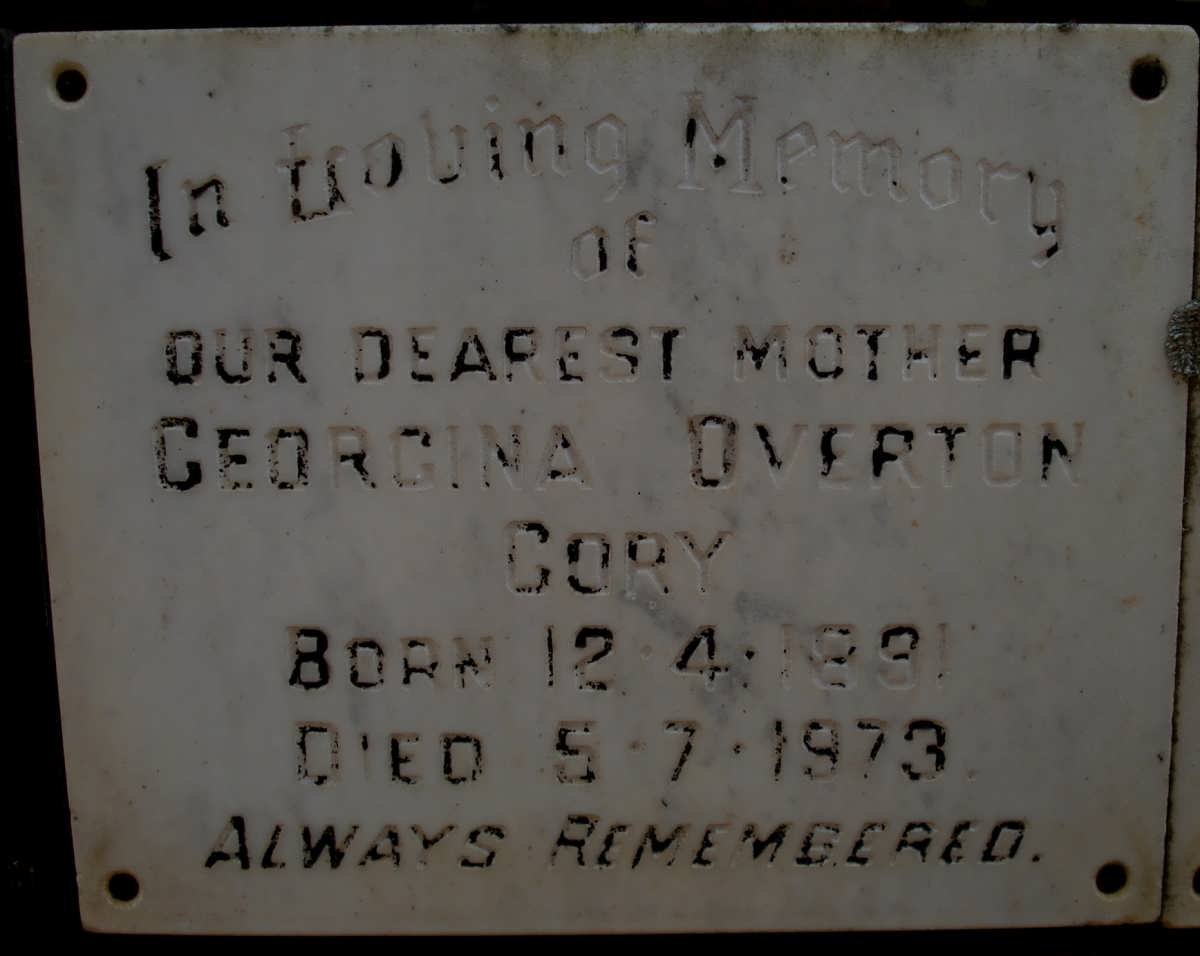 In Loving Memory
of
OUR DEAREST MOTHER
GEORGINA OVERTON
CORY
BORN 12·4·1891
DIED 5·7·1973.
ALWAYS REMEMBERED.